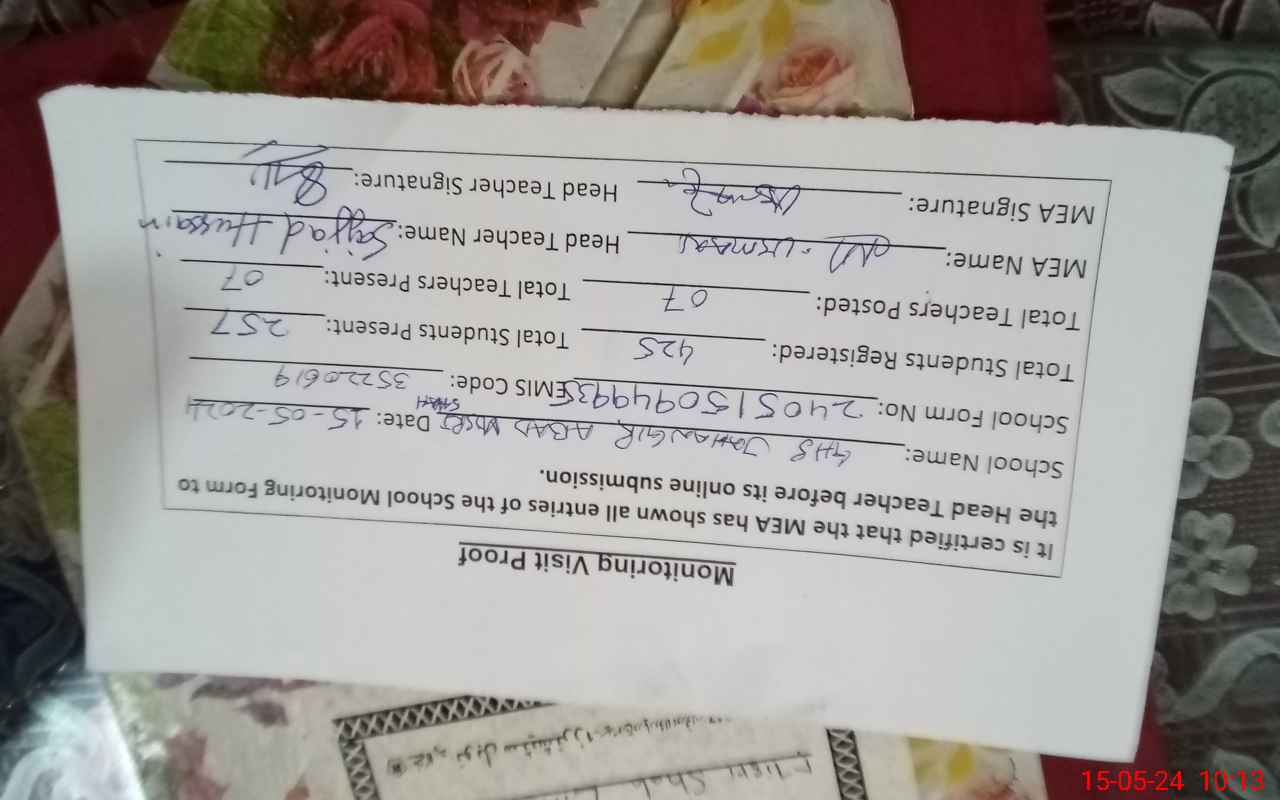 Monitoring Visit Proof
It is certified that the MEA has shown all entries of the School Monitoring Form to
the Head Teacher before its online submission.
School Name: GHS JAHANGIR ABAD SHAH Date: 15-05-2024
School Form No: 24051509449935 EMIS Code: 35220619
Total Students Registered: 425 Total Students Present: 257
Total Teachers Posted: 07 Total Teachers Present: 07
MEA Name: M. Usman Head Teacher Name: Sajjad Hussain
MEA Signature: Head Teacher Signature:
Shah
15-05-24 10:13